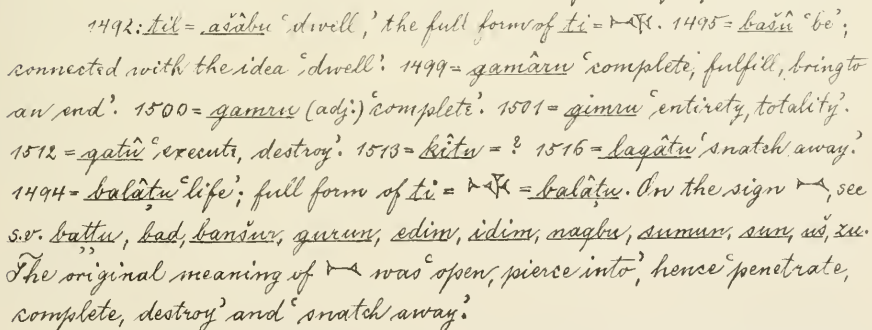 1492: til = ašâbu ‘dwell,’ the full form of ti = 𒋾. 1495 = bašû ‘be’;
connected with the idea ‘dwell’. 1499 = gamâru ‘complete, fulfill, bring to
an end’. 1500 = gamru (adj.) ‘complete’. 1501 = gimru ‘entirety, totality’.
1512 = qatû ‘execute, destroy’. 1513 = kîtu = ? 1516 = laqâtu ‘snatch away.’
1494 = balâṭu ‘life’; full form of ti = 𒋾 = balâṭu. On the sign 𒁁, see
s.v. baṭṭu, bad, banšur, gurun, edim, idim, nagbu, sumun, sun, uš, zu.
The original meaning of 𒁁 was ‘open, pierce into’, hence ‘penetrate,
complete, destroy’ and ‘snatch away.’